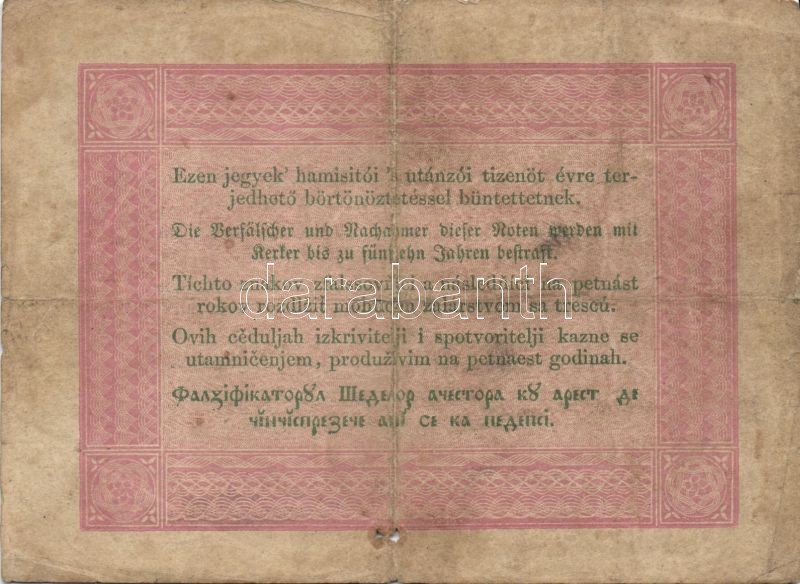 Ezen jegyek' hamisitói 's utánzói tizenöt évre ter-
jedhető börtönöztetéssel büntettetnek.
Die Verfälscher und Nachahmer dieser Noten werden mit
Kerker bis zu fünfzehn Jahren bestraft.
Tíchto znakov a na petnást
rokov sa trescú.
darabanth
Ovih cěduljah izkrivitelji i spotvoritelji kazne se
utamničenjem, produživim na petnaest godinah.
Фалꙁіфікаторꙋл Шеделор ачестора кꙋ арест де
чінчіспрезече ані се ка педепсі.